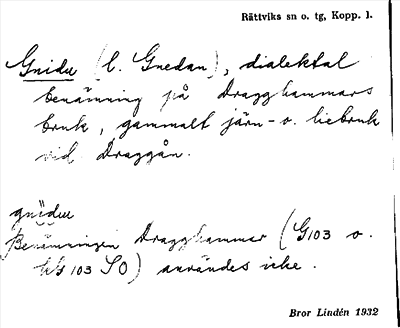 Rättviks sn o. tg, Kopp. l.
Gnidu (l. Gnedan), dialektal
benämning på Dragghammars
bruk, gammalt järn- o. liebruk
vid Draggån.
gnidu
Benämningen Dragghammar (G103 o.
103 SO) användes icke.
Bror Lindén 1932